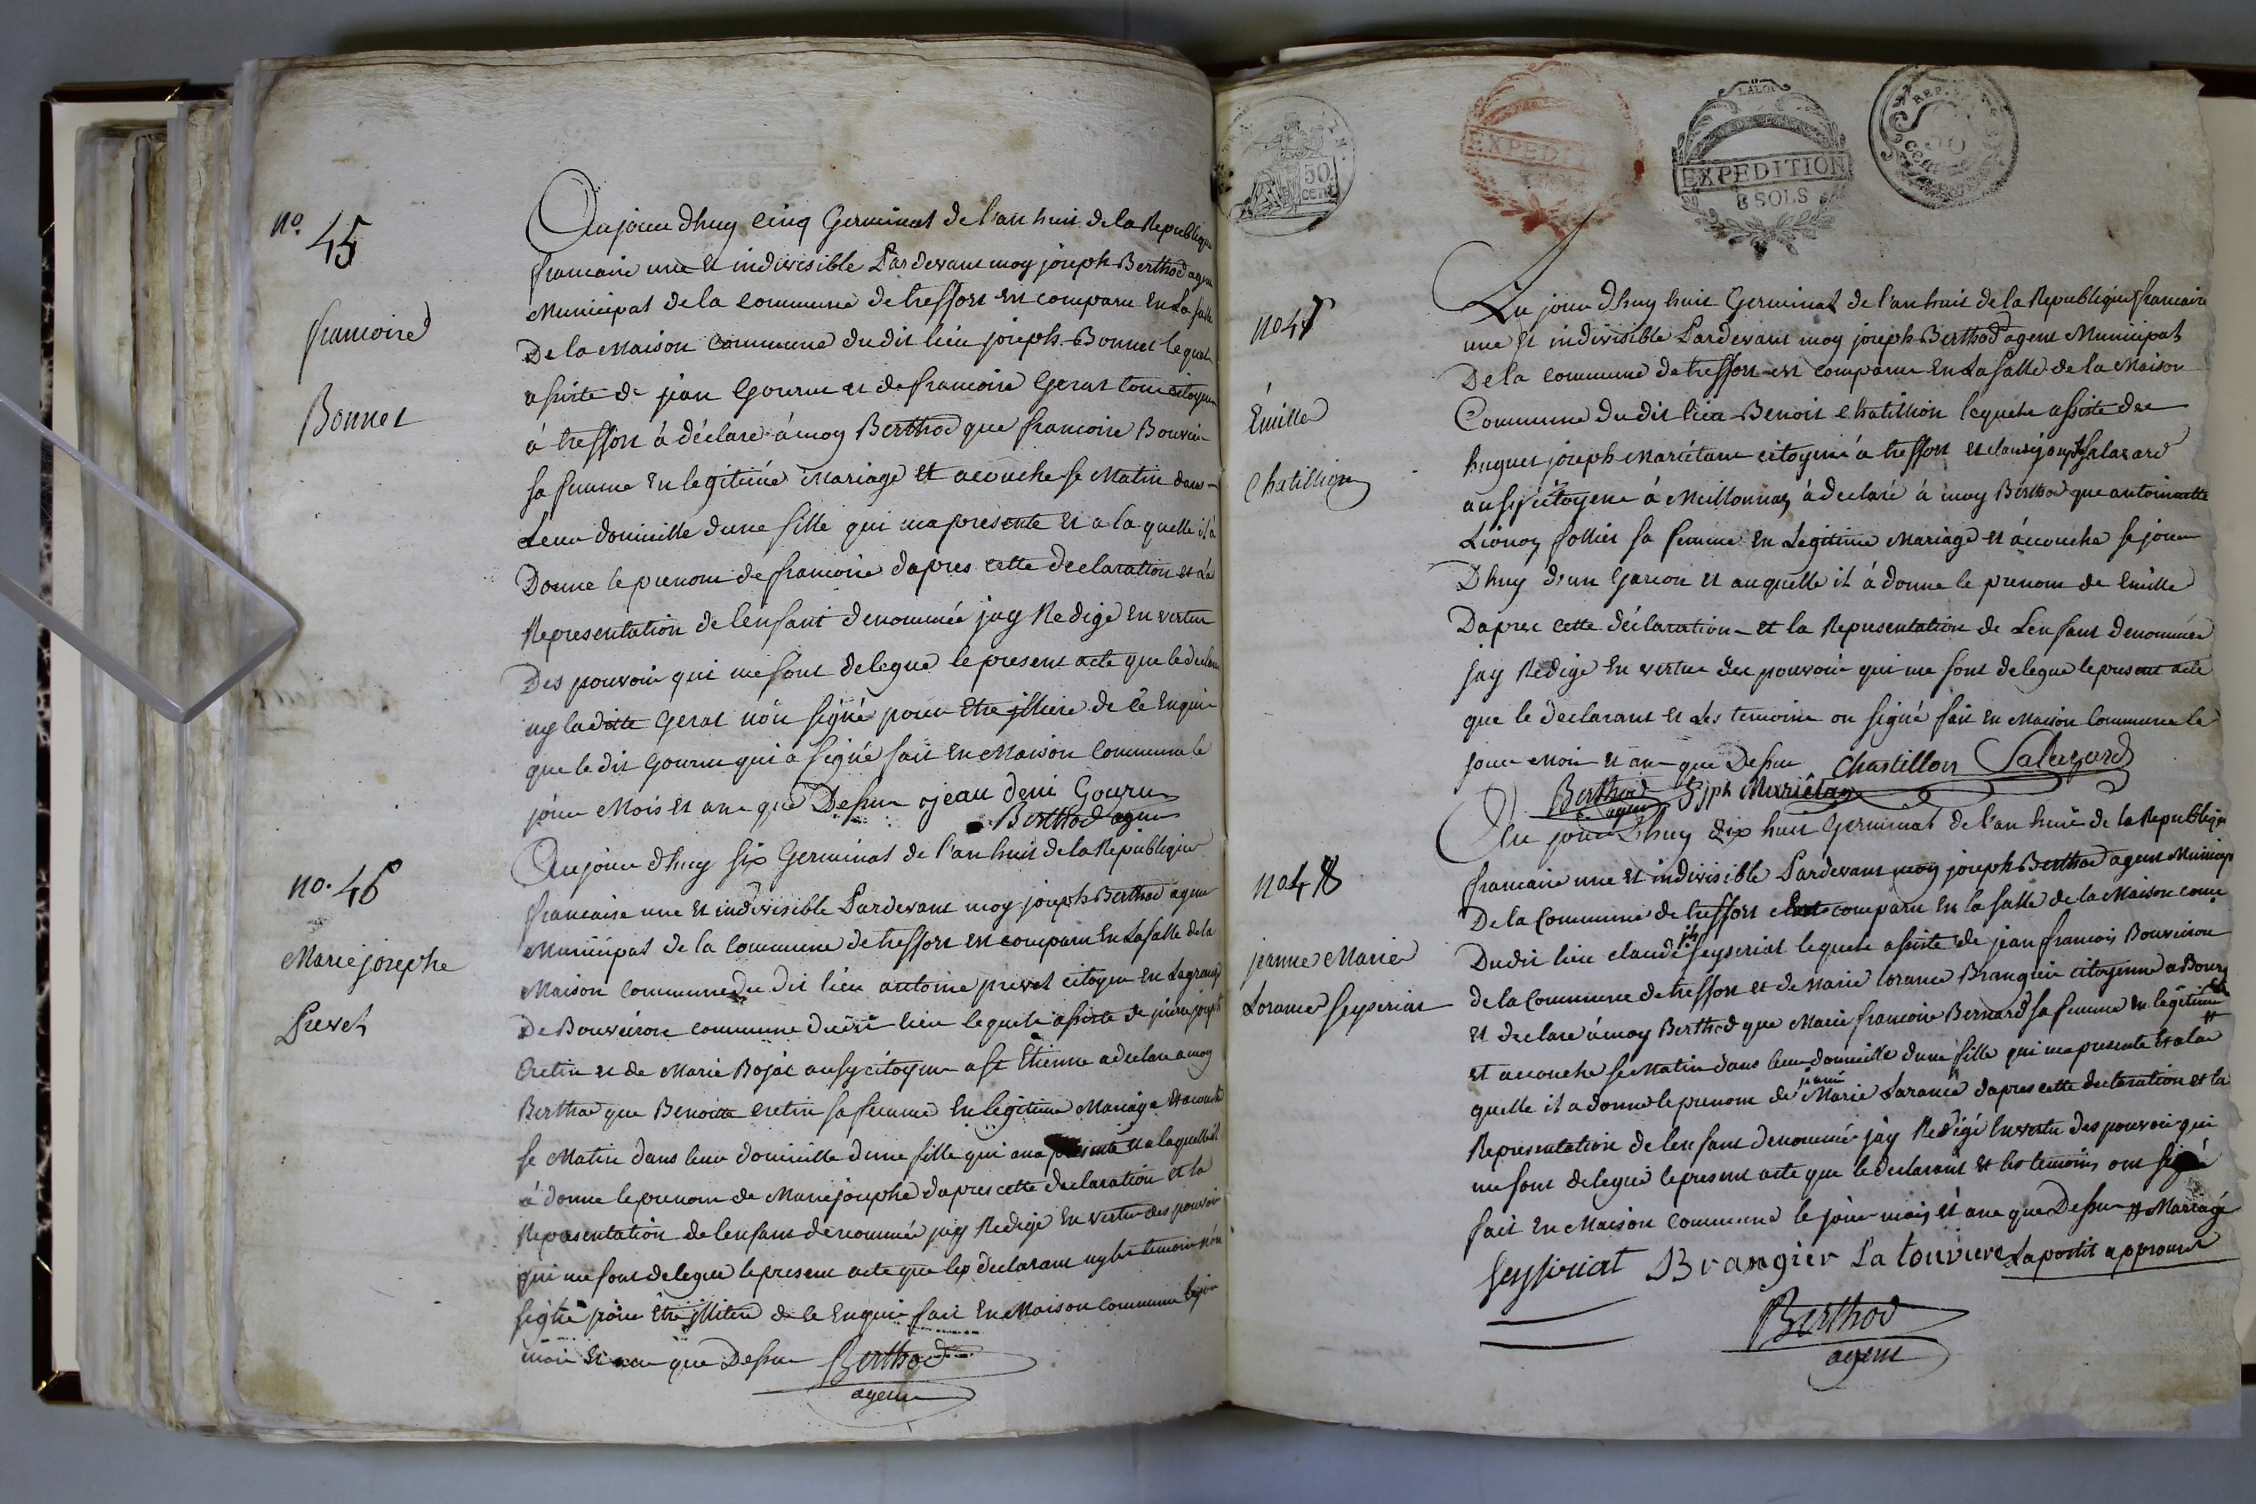 no. 45
francoise
Bonnet
Aujour dhuy cinq Germinal de l'an huit de la Republique
francaise une et indivisible Pardevant moy joseph Berthod agent
Municipal de la commune de treffort est comparu en La salle
De la Maison Commune dudit lieu joseph Bonnet lequel
assiste de jean Gourru et de francoise Geras tous citoyen
à treffort à déclaré à moy Berthod que francoise Bouvier
sa femme en legitime Mariage et acouche se Matin dans
Leur domicille dune fille qui ma presente et a la quelle il à
Donne le prenom de francoise dapres cette declaration et La
Representation de lenfant denommée jay Redige en vertu
Des pouvoir qui me sont delegue le present acte que le declarant
ny la ditte Geras non signé pour etre jllitere de ce Enquis
que le dit Gourru qui a signé fait en Maison Commune le
jour Mois et an que Dessu jean deni Gourru
Berthod agent
no. 46
Marie josephe
Prevet
Aujour dhuy six Germinal de l'an huit de la Republique
francaise une et indivisible Pardevant moy joseph Berthod agent
Municipal de la Commune de treffort est comparu En La salle de la
Maison commune du dit lieu antoine prevet citoyen en Lagrange
De Bouveiron commune dudit lieu lequelle assiste de pierre joseph
Cretin et de Marie Bojat aussy citoyen a st Etienne a declare a moy
Berthod que Benoitte cretin sa femme En legitime Mariage et acouche
se Matin dans leur domicille dune fille qui ma presente et a laquelle il
à donne le prenom de Marie josephe dapres cette declaration et la
Representation de lenfant denommée jay Redige en vertu des pouvoir
qui me sont delegue le present acte que les declarant ny les temoin non
signé pour Etre jllitere de ce Enquis fait en Maison commune le jour
mois et an que Dessu Berthod
agent
50
cent
EXPEDITION
LA LOI
EXPEDITION
8 SOLS
REP.
50
CENT
no 47
Émille
Chatillion
Au jour dhuy huit Germinal de l'an huit de la Republique francaise
une et indivisible Pardevant moy joseph Berthod agent Municipal
De la commune de treffort est comparu en La salle de la Maison
Commune du dit lieu Benoit Chatillion lequelle assiste de
hugues joseph Mariétan citoyen à treffort et claude joseph Salazard
aussy citoyene à Meillonnaz à declaré à moy Berthod que antoinette
Lionoy follier sa femme En Legitime Mariage et acouche se jour
Dhuy d'un Garcon et auquelle il à donne le prenom de Emille
Dapres cette déclaration et la Representation de Lenfant denommée
jay Rédige en vertue des pouvoir qui me sont delegue le present acte
que le declarant et Les temoin on signé fait en Maison Commune le
jour Mois et an que Dessu Chastillon Salazard
Berthod agent Jph Mariétan
no 48
jeanne Marie
Lorance Seyseriat
Au jour Dhuy dix huit Germinal de l'an huit de la Republique
francaise une et indivisible Pardevant moy joseph Berthod agent Municip
De la Commune de treffort est comparu en la salle de la Maison comune
Dudit lieu claude jh Seyseriat lequelle assiste de jean francois Bouveiron
de la Commune de treffort et de Marie lorance Brangier citoyenne a Bourg
et declare à moy Berthod que Marie francoise Bernard sa femme en legitime #
et acouche se Matin dans leur domicille dune fille qui ma presente et a la
quelle il a donne le prenom de jeanne Marie Larance dapres cette declaration et la
Representation de lenfant denommée jay Redigé En vertu des pouvoir qui
me sont delegué le present acte que le declarant et les temoins ont signé
fait en Maison commune le jour mois et an que Dessu # Mariage
Seyseriat Brangier Latouviere Lapostil approuvé
Berthod
agent